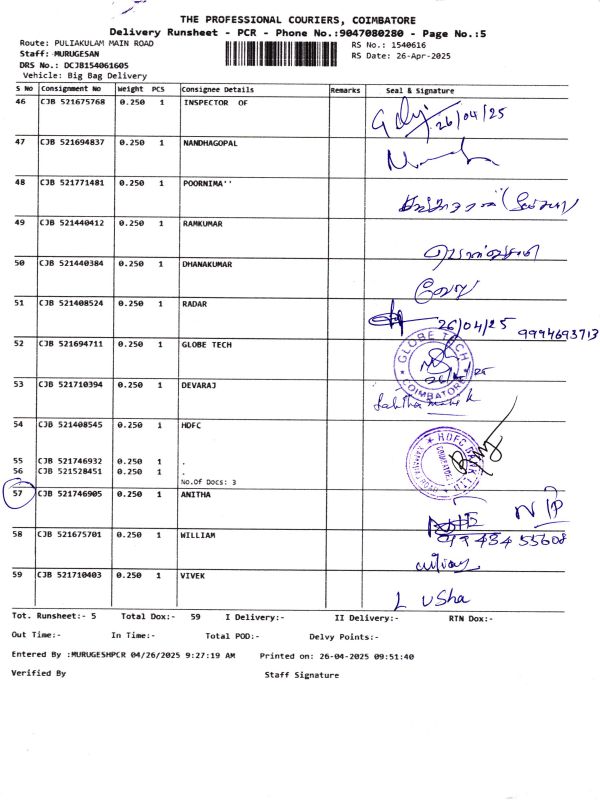 THE PROFESSIONAL COURIERS, COIMBATORE
Delivery Runsheet - PCR - Phone No.:9047080280 - Page No.:5
Route: PULIAKULAM MAIN ROAD RS No.: 1540616
Staff: MURUGESAN RS Date: 26-Apr-2025
DRS No.: DCJ8154061605
Vehicle: Big Bag Delivery
S No Consignment No Weight PCS Consignee Details Remarks Seal & Signature
46 CJB 521675768 0.250 1 INSPECTOR OF 26/04/25
47 CJB 521694837 0.250 1 NANDHAGOPAL
48 CJB 521771481 0.250 1 POORNIMA''
49 CJB 521440412 0.250 1 RAMKUMAR
50 CJB 521440384 0.250 1 DHANAKUMAR
51 CJB 521408524 0.250 1 RADAR 26/04/25 9994693713
52 CJB 521694711 0.250 1 GLOBE TECH GLOBE TECH COIMBATORE
53 CJB 521710394 0.250 1 DEVARAJ
54 CJB 521408545 0.250 1 HDFC HDFC BANK LTD
55 CJB 521746932 0.250 1 .
56 CJB 521528451 0.250 1 .
No.Of Docs: 3
57 CJB 521746905 0.250 1 ANITHA N IP
58 CJB 521675701 0.250 1 WILLIAM
59 CJB 521710403 0.250 1 VIVEK L USha
Tot. Runsheet:- 5 Total Dox:- 59 I Delivery:- II Delivery:- RTN Dox:-
Out Time:- In Time:- Total POD:- Delvy Points:-
Entered By :MURUGESHPCR 04/26/2025 9:27:19 AM Printed on: 26-04-2025 09:51:40
Verified By Staff Signature